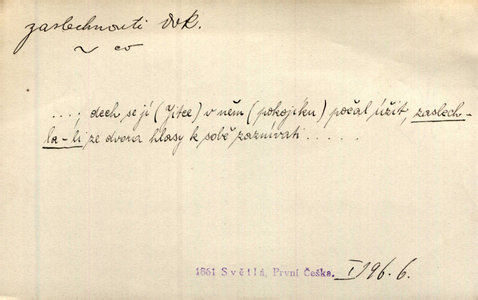 zaslechnouti dok.
~ co
...., dech se jí (Jitce) v něm (pokojíku) počal úžit, zaslech-
la-li ze dvora hlasy k sobě zaznívati ......
1861 Světlá, První Češka. I 196. 6.